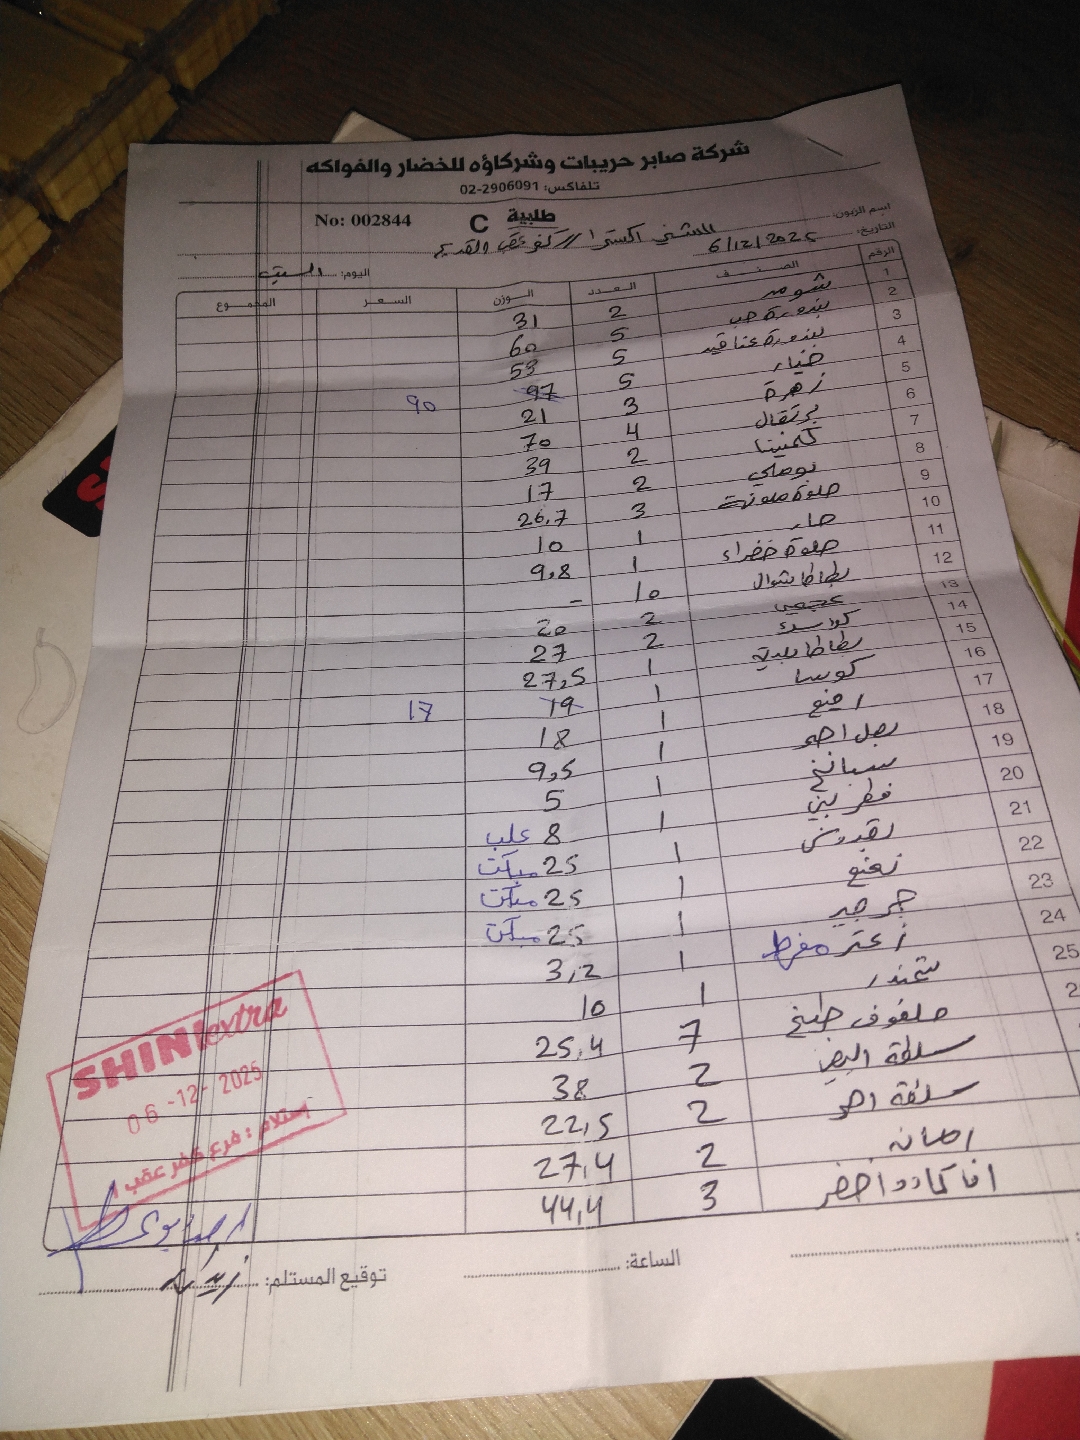 شركة صابر حريبات وشركاؤه للخضار والفواكه
تلفاكس: 02-2906091
No: 002844 C طلبية
اسم الزبون: الشني اكسترا // كفر عقب والقديرة
التاريخ: 6/12/2025
اليوم: السبت
الرقم الصنف العدد الوزن السعر المجموع
1 شومر 2 31
2 بندورة حب 5 60
3 بندورة عناقيد 5 53
4 خيار 5 97 90
5 زهرة 3 21
6 برتقال 4 70
7 كلمنتينا 2 39
8 بوملي 2 17
9 حلوة ملونة 3 26,7
10 حار 1 10
11 حلوة خضراء 1 9,8
12 بطاطا شوال 10 -
13 عجمي 2 20
14 2 27
15 بطاطا 1 27,5
16 كوسا 1 19 17
17 1 18
18 بصل احمر 1 9,5
19 سبانخ 1 5
20 فطر بني 1 8 علب
21 بقدونس 1 25
22 نعنع 1 25
23 جرجير 1 25
24 زعتر مفرط 1 3,2
25 شمندر 1 10
ملفوف طبخ 7 25,4
2 38
2 22,5
2 27,4
افاكادو اخضر 3 44,4
SHINI extra
06-12-2025
إستلام : فرع كفر عقب 1
الساعة:
توقيع المستلم: